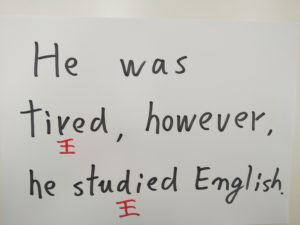 He was
tired, however,
王
he studied English.
王